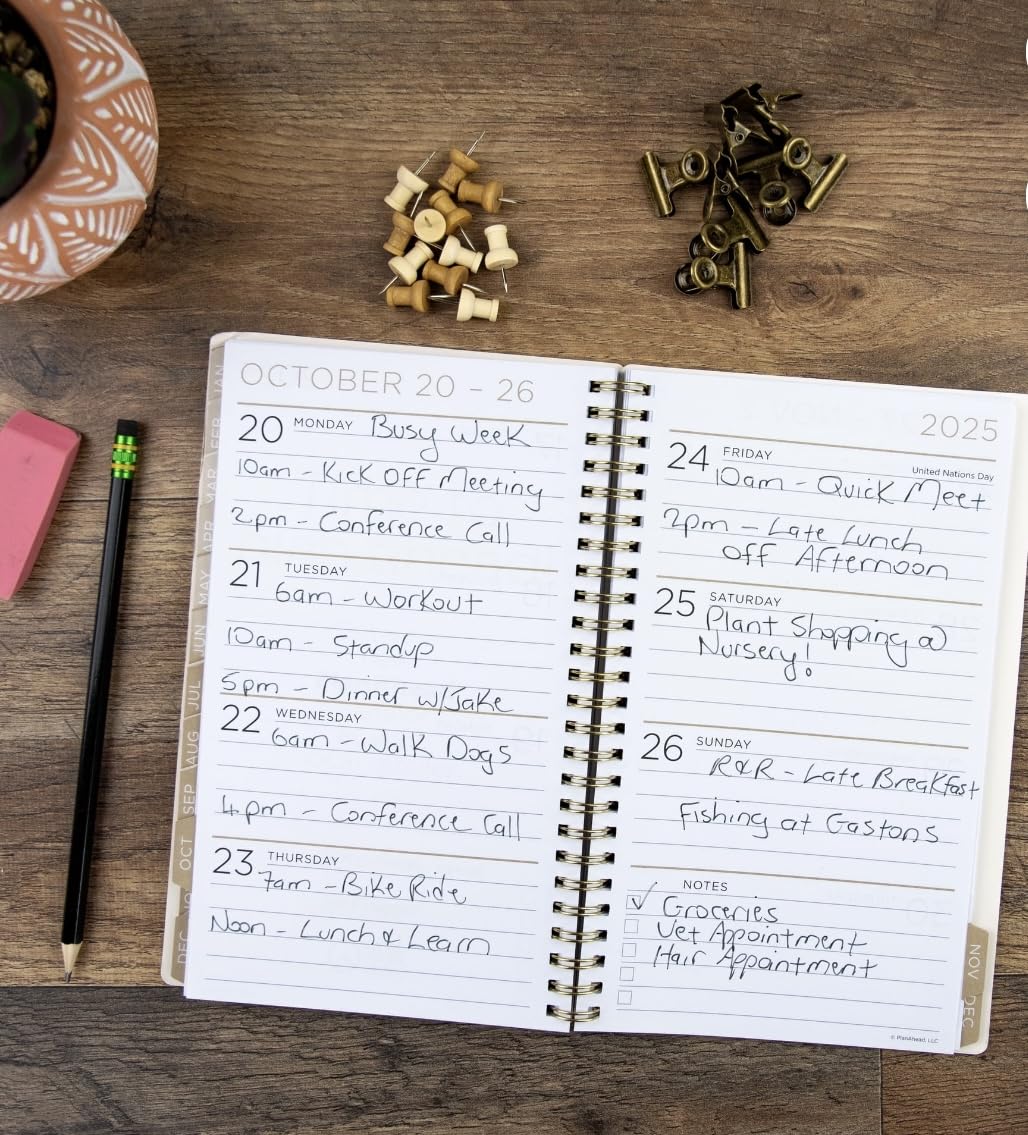 OCTOBER 20 - 26
20 MONDAY Busy Week
10am - Kick Off Meeting
2pm - Conference Call
21 TUESDAY
6am - Workout
10am - Standup
5pm - Dinner w/Jake
22 WEDNESDAY
6am - Walk Dogs
4pm - Conference Call
23 THURSDAY
7am - Bike Ride
Noon - Lunch & Learn
2025
24 FRIDAY
United Nations Day
10am - Quick Meet
2pm - Late Lunch
Off Afternoon
25 SATURDAY
Plant Shopping @
Nursery!
26 SUNDAY
R&R - Late Breakfast
Fishing at Gastons
NOTES
Groceries
Vet Appointment
Hair Appointment
© PlanAhead, LLC
JAN
FEB
MAR
APR
MAY
JUN
JUL
AUG
SEP
OCT
DEC
NOV
DEC